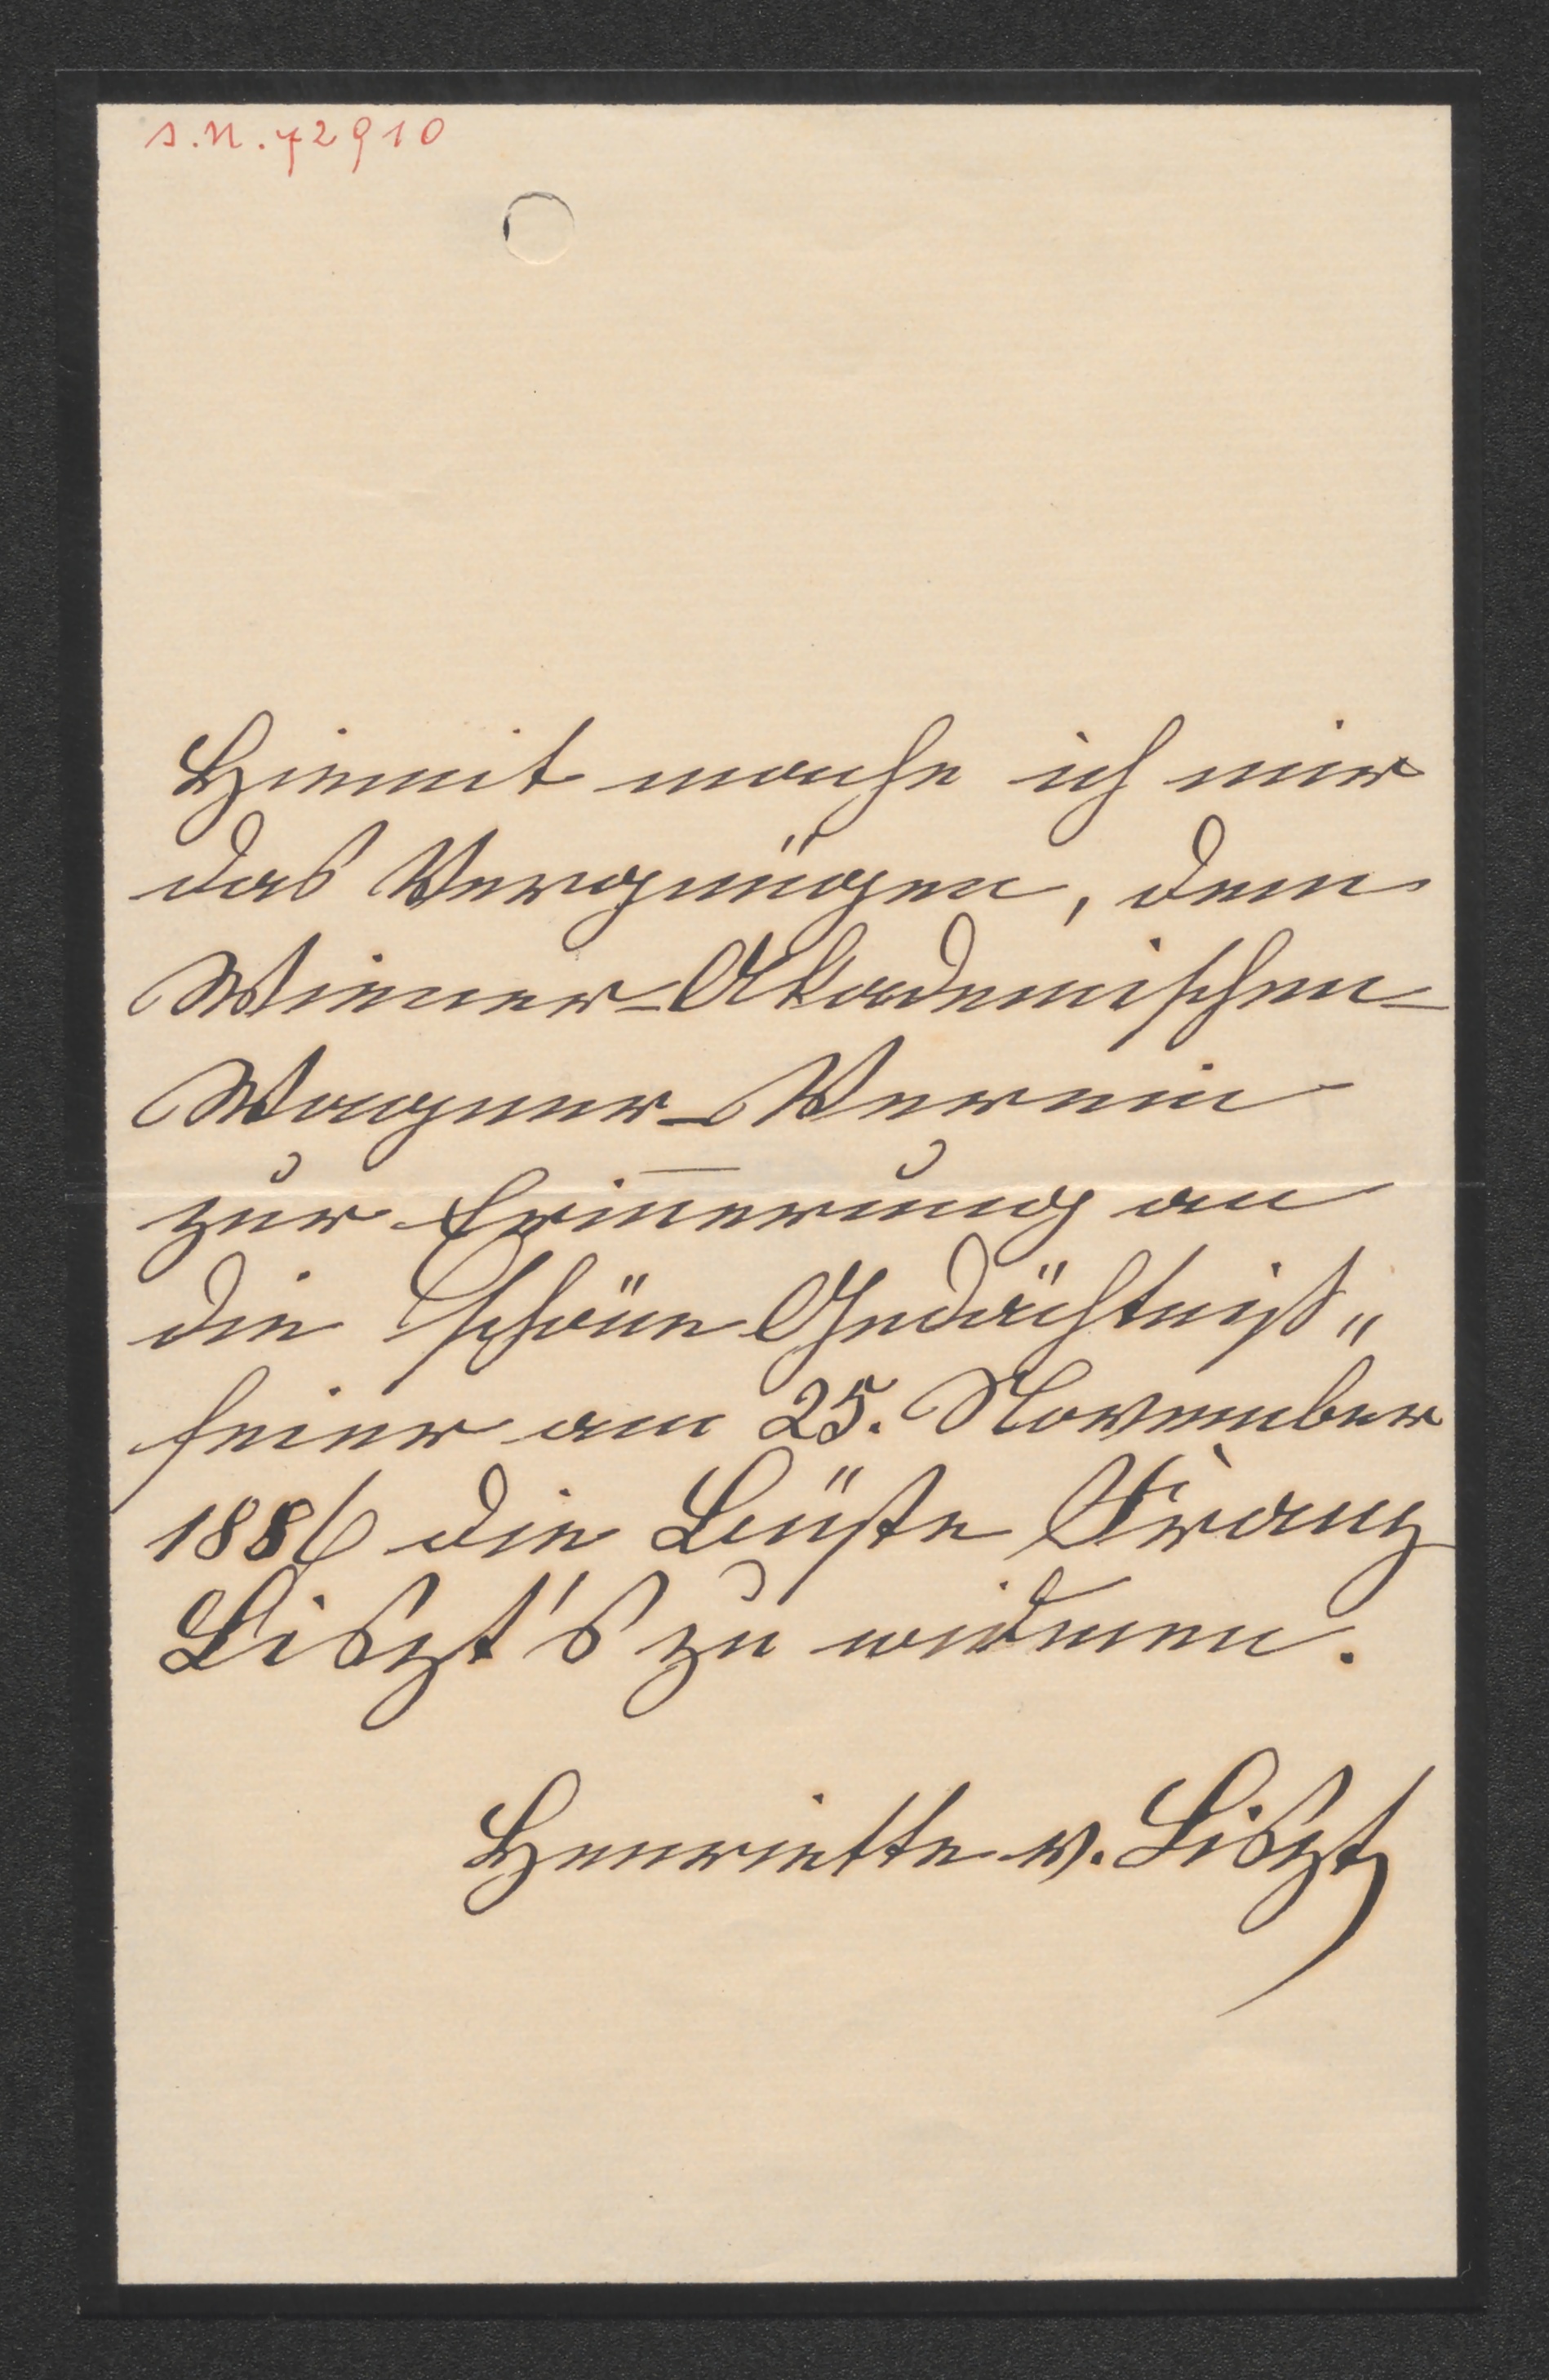 s.n. 72910
Hiemit mache ich mir
das Vergnügen, dem
Wiener-Akademischen-
Wagner-Verein
zur Erin̅erung an
die schöne Gedächtniß„
feier am 25. November
1886 die Büste Franz
Liszt's zu widmen.
Henriette v. Liszt